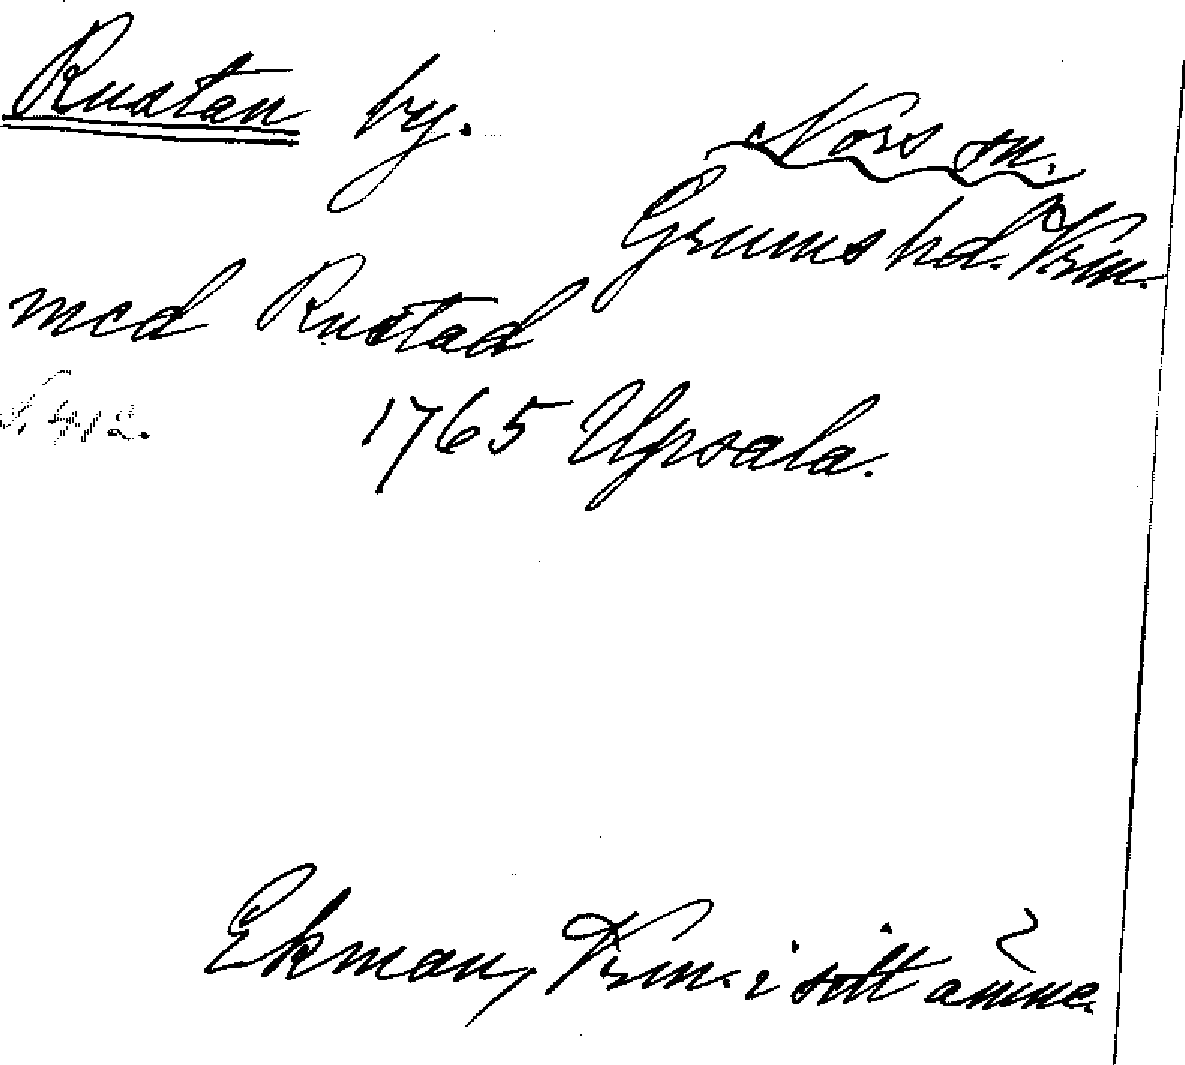 Rustan by.
Nors sn.
Grums hd. Vrm.
med Rustad
S. 412.
1765 Upsala.
Ekman, Vrm. i sitt ämne.